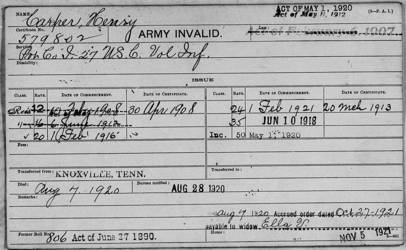 NAME. Carper, Henry
Certificate No. 579802
ARMY INVALID.
ACT OF MAY 1, 1920
Act of May 11, 1912
Law:
Co. I-27 U.S.C. Vol Inf.
Disability:
ISSUE
CLASS. RATE. DATE OF COMMENCEMENT. DATE OF CERTIFICATE. CLASS. RATE. DATE OF COMMENCEMENT. DATE OF CERTIFICATE.
12 1908 30 Apr 1908 24 1 Feb 1921 20 Mch 1913
16 6 35 JUN 10 1918
20 11 Feb 1916 Inc. 50 May 1, 1920
Transferred from KNOXVILLE, TENN.
Transferred from
Died: Aug 7, 1920 Bureau notified: AUG 28 1920
Remarks: Aug 7 1920 Accrued order dated Oct-27-1921
payable to widow Ella V.
Former Roll No. 806 Act of June 27 1890. NOV 5 1921